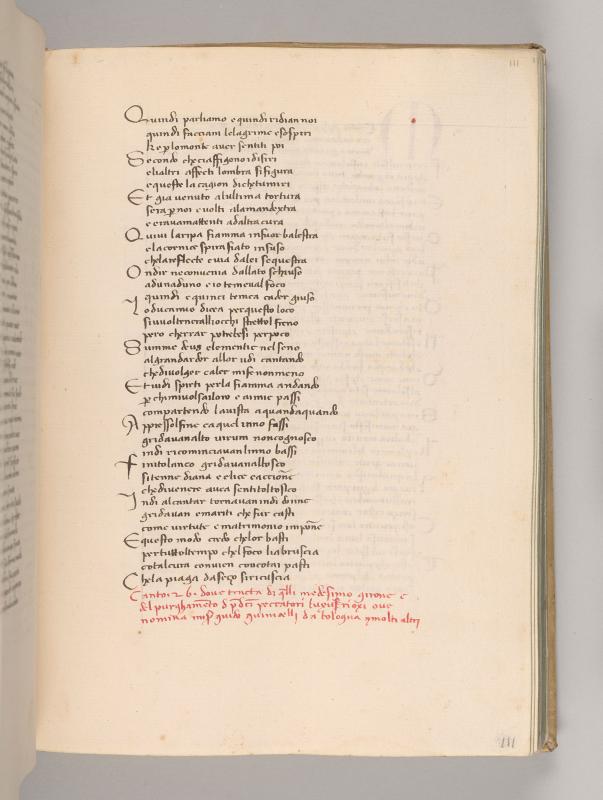 111
Quindi parliamo e quindi ridian noi
quindi facciam lelagrime esospiri
che plomonte aver sentiti poi
Secondo checiaffigonoidisiri
elialtri affecti lombra sifigura
equesta lacagion dichetumiri
Et gia venuto alultima tortura
sera p noi e volti alamandextra
e eravamattenti adaltra cura
Quivi laripa fiamma infuor balestra
elacornice spira fiato insuso
chelareflecte evia dalei sequestra
Ondir neconvenia dallato schiuso
adunaduno eio temeval foco
quindi equinci temea cader giuso
Loducamio dicea perquesto loco
sivuoltenerallocchi strettol freno
pero cherrar potrebesi perpoco
Summe deus clementie nel seno
algrandardor allor udi cantando
chedivolger caler mifenonmeno
Et vidi spirti perla fiamma andando
p chimivolsalloro e aimie passi
compartendo lavista aquandaquando
Appressolfine caquel inno fassi
gridavanalto virum noncognosco
indi ricominciavan linno bassi
Finitolanco gridavanalbosco
sitenne diana e elice caccione
chedivenere avea sentitoltosco
Indi alcantar tornavan indi donne
gridavan emariti che fur casti
come virtute e matrimonio impone
Equesto modo credo chelor basti
pertuttoltempo chel foco liabruscia
cotalcura convien concotai pasti
Chela piaga daseço siricuscia
Canto 26. dove tracta di qlli medesimo girone e
del purghameto d pdcti peccatori luxuriosi ove
nomina mss guido guinicelli da bologna ymolti altri
111